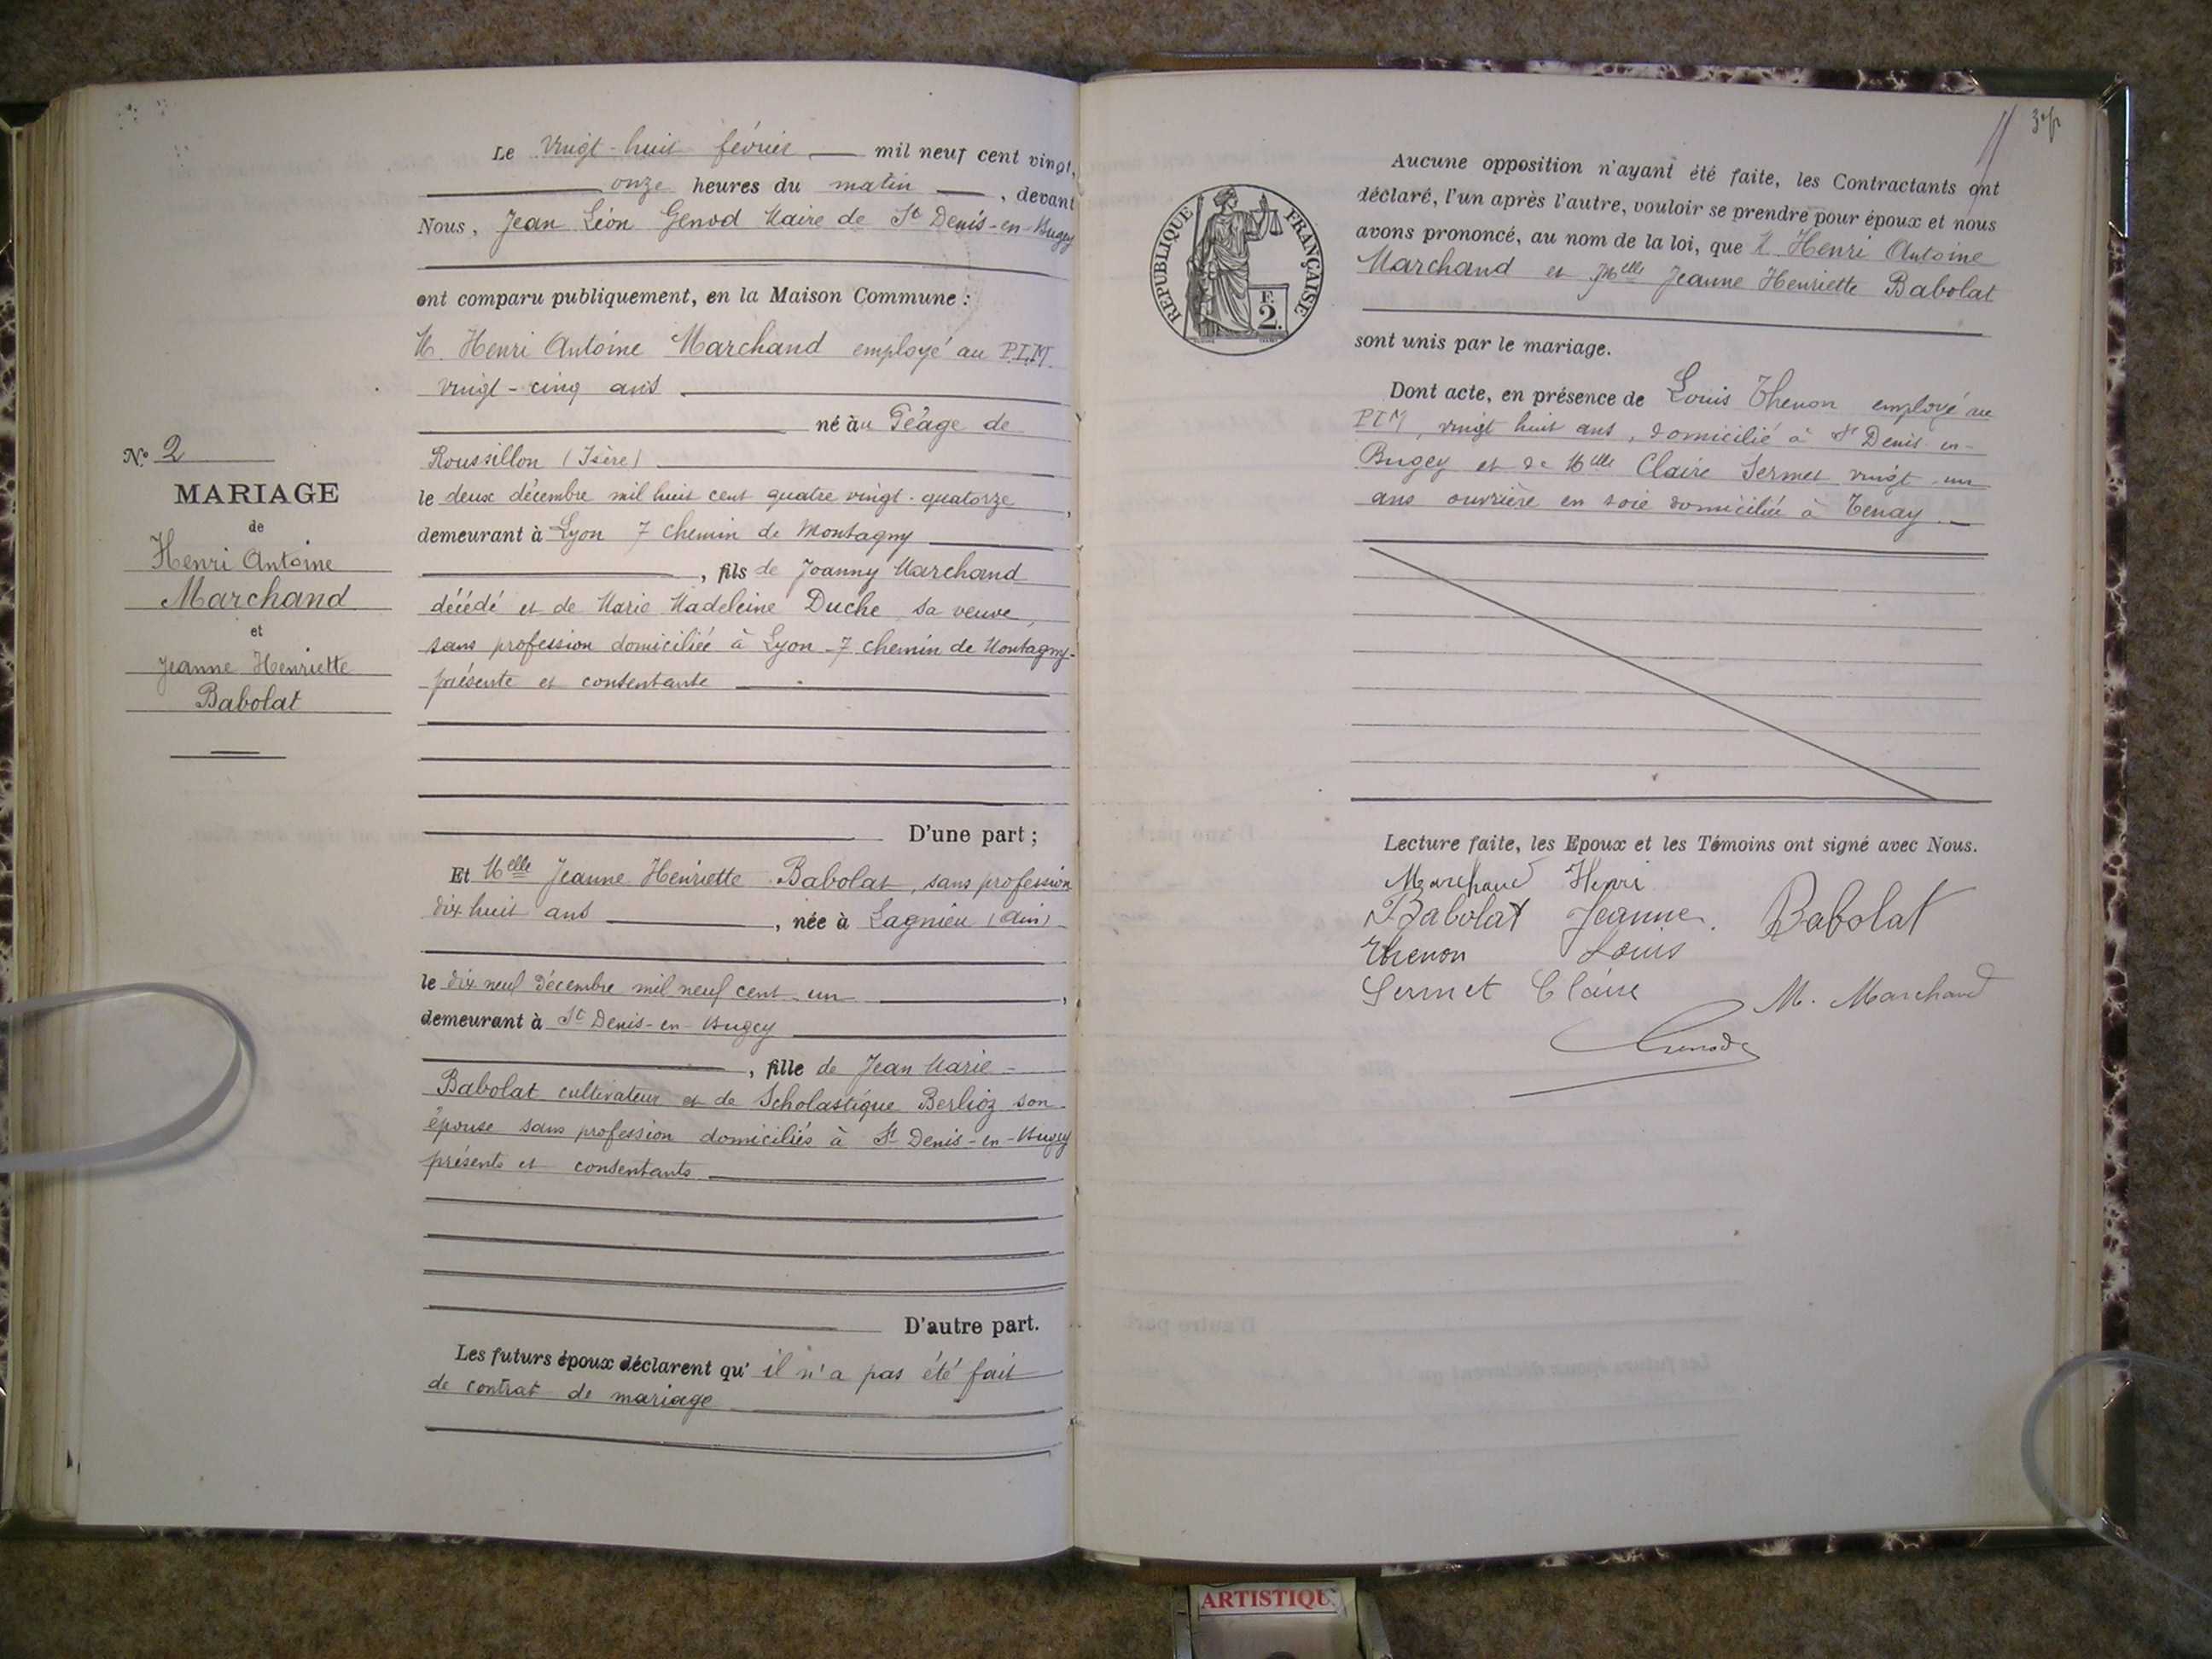 Le Vingt-huit février mil neuf cent vingt,
onze heures du matin, devant
Nous, Jean Léon Genod Maire de St Denis-en-Bugey
ont comparu publiquement, en la Maison Commune :
M. Henri Antoine Marchand employé au P.L.M.
vingt-cinq ans
né au Péage de
Roussillon (Isère)
le deux décembre mil huit cent quatre vingt-quatorze,
demeurant à Lyon 7 chemin de Montagny
, fils de Joanny Marchand
décédé et de Marie Madeleine Duche sa veuve,
sans profession domiciliée à Lyon -7 chemin de Montagny-
présente et consentante
D'une part ;
Et Melle Jeanne Henriette Babolat, sans profession
dix huit ans, née à Lagnieu (Ain)
le dix neuf Décembre mil neuf cent un,
demeurant à St Denis-en-Bugey
, fille de Jean Marie
Babolat cultivateur et de Scholastique Berlioz son
épouse sans profession domiciliés à St Denis-en-Bugey
présents et consentants
D'autre part.
Les futurs époux déclarent qu'il n'a pas été fait
de contrat de mariage
No 2
MARIAGE
de
Henri Antoine
Marchand
et
Jeanne Henriette
Babolat
RÉPUBLIQUE FRANÇAISE
F.
2.
Aucune opposition n'ayant été faite, les Contractants ont
déclaré, l'un après l'autre, vouloir se prendre pour époux et nous
avons prononcé, au nom de la loi, que M. Henri Antoine
Marchand et Melle Jeanne Henriette Babolat
sont unis par le mariage.
Dont acte, en présence de Louis Thenon employé au
PLM, vingt huit ans, domicilié à St Denis-en-
Bugey et de Melle Claire Sermet vingt-un
ans ouvrière en soie domiciliée à Tenay.
Lecture faite, les Epoux et les Témoins ont signé avec Nous.
Marchand Henri
Babolat Jeanne. Babolat
Thenon Louis
Sermet Claire M. Marchand
Genod
ARTISTIQU